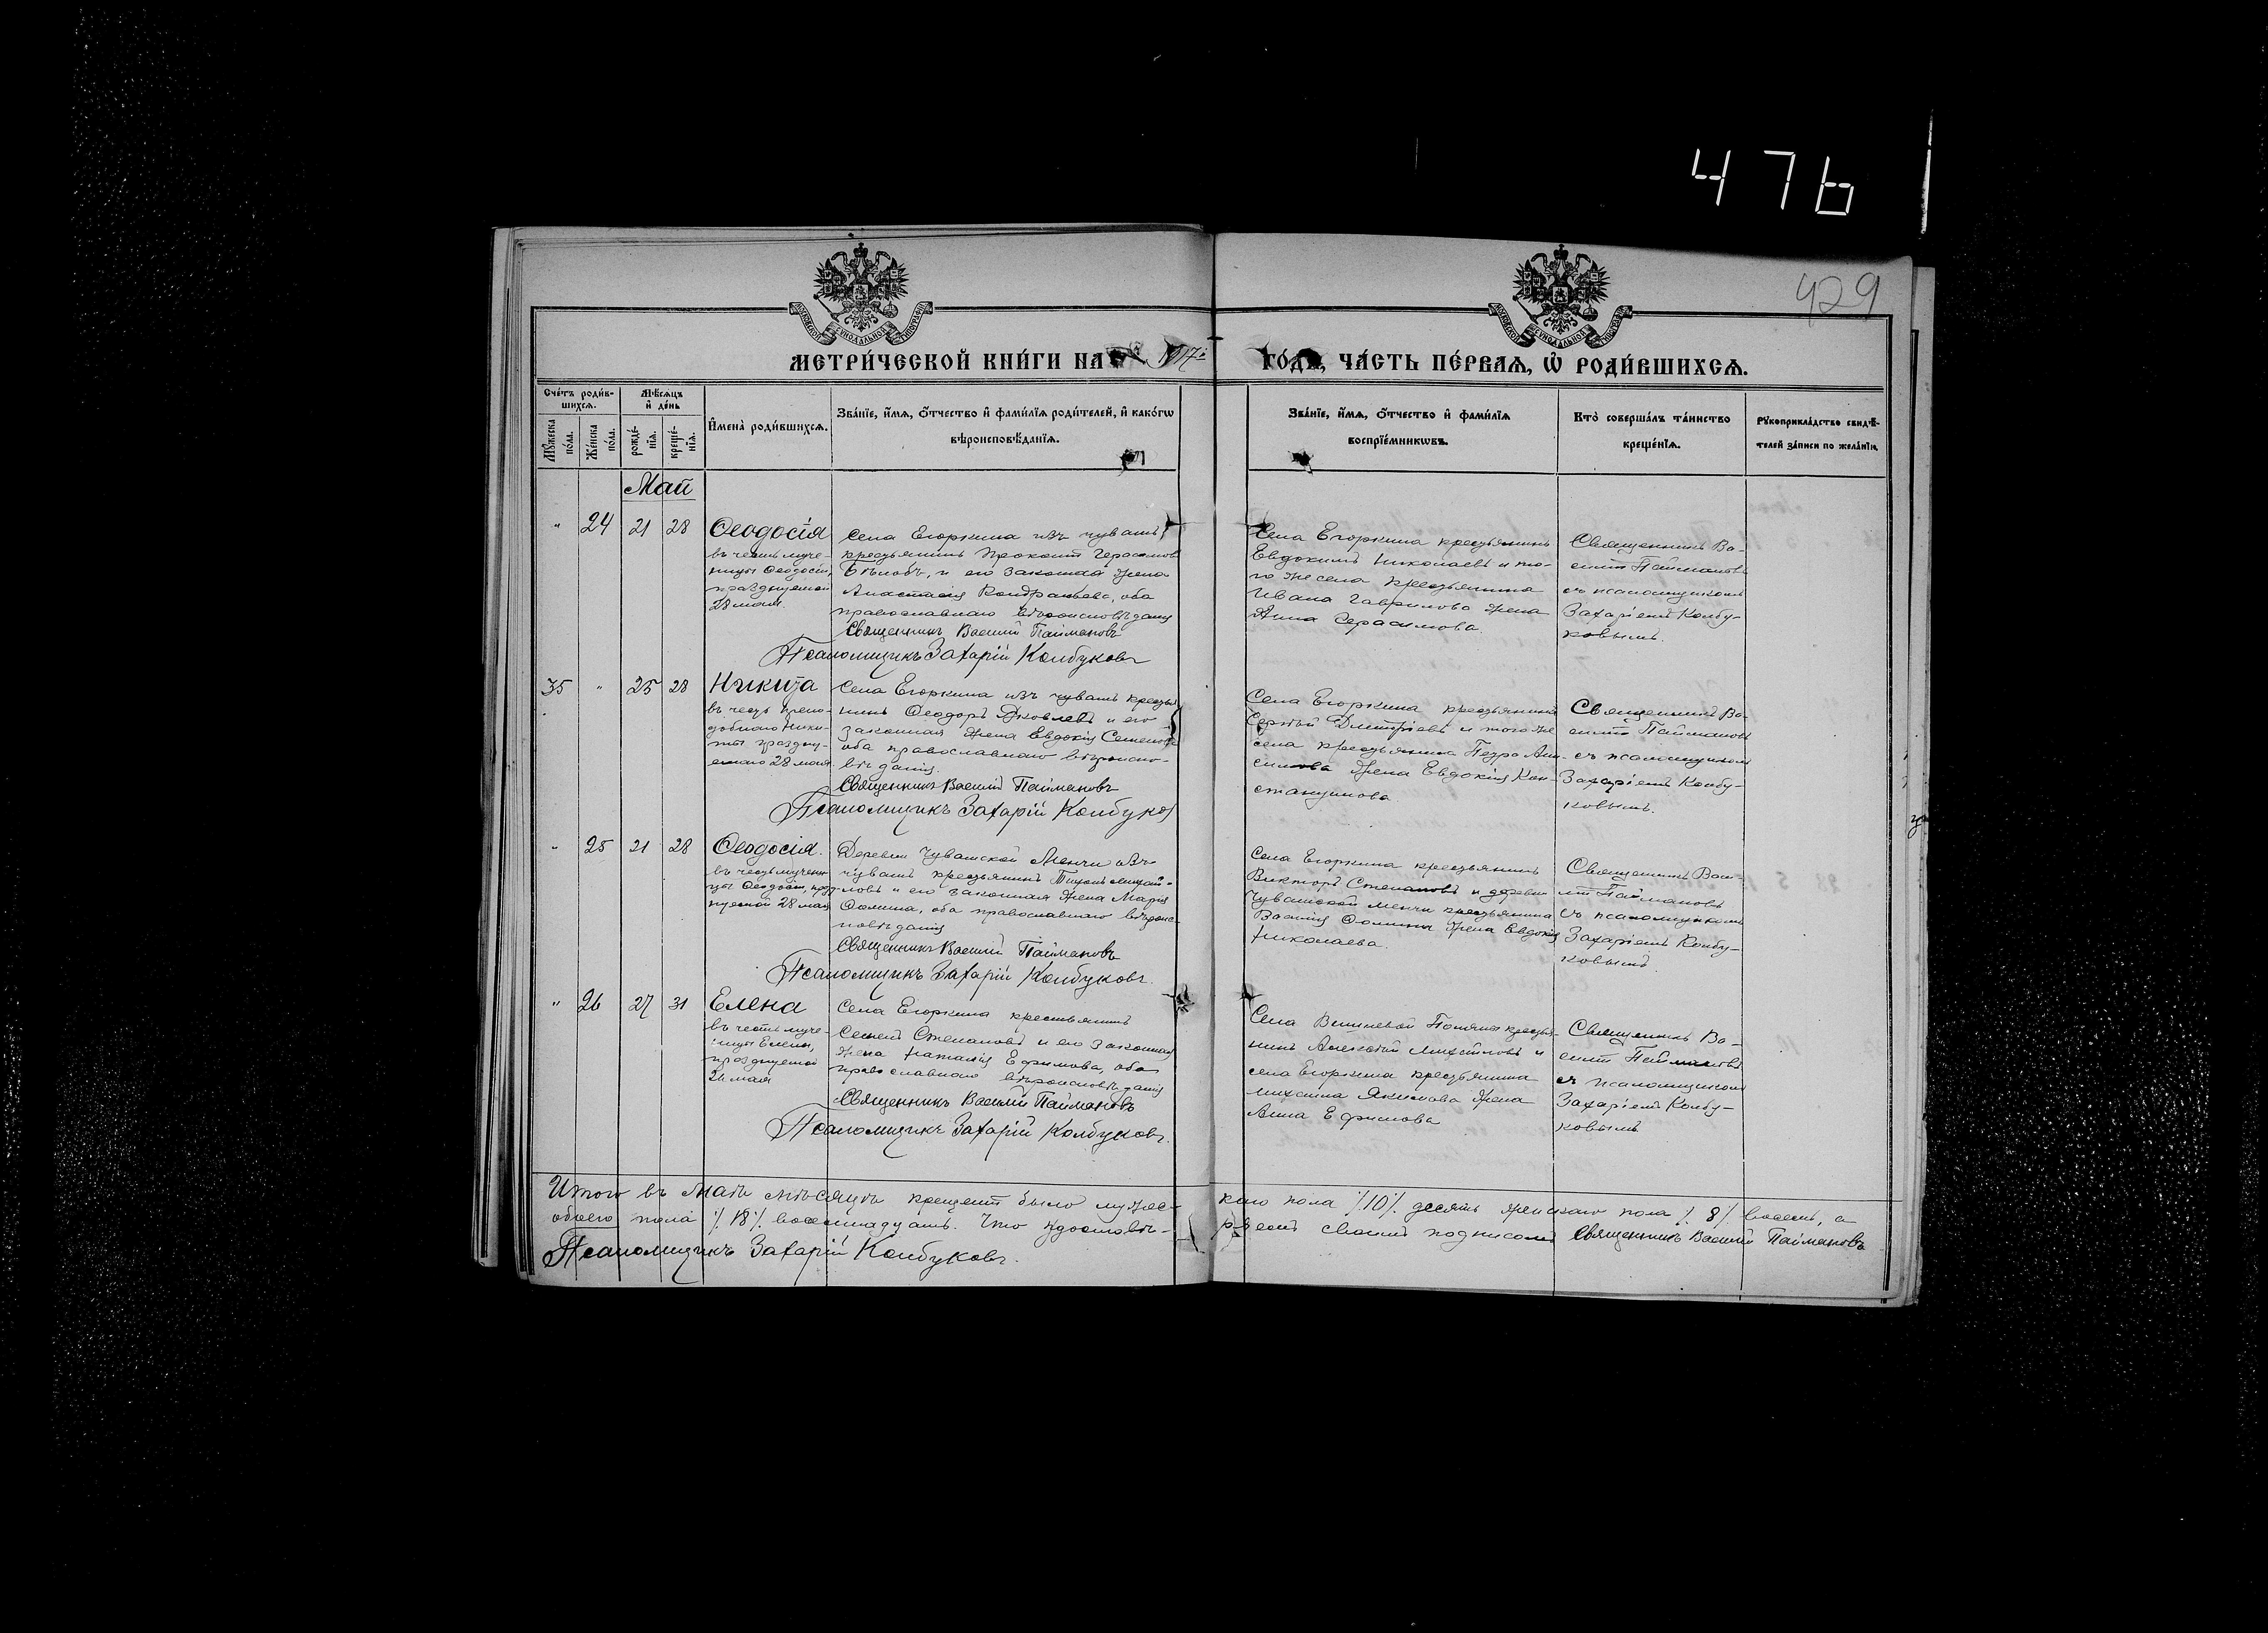 476
429
МОСКОВСКОЙ СѴНОДАЛЬНОЙ ТИПОГРАФІИ
МОСКОВСКОЙ СѴНОДАЛЬНОЙ ТИПОГРАФІИ
МЕТРИ́ЧЕСКОЙ КНИ́ГИ НА 1917 г. ГО́ДЪ, ЧА́СТЬ ПЕ́РВАѦ, Ѡ҆ РОДИ́ВШИХСѦ.
Сче́тъ роди́в-
шихсѧ.
Мꙋ́жеска по́ла.
Же́нска по́ла.
Мѣ́сѧцъ
и҆ де́нь
рожде́-
нїѧ.
креще́-
нїѧ.
И҆мена̀ роди́вшихсѧ.
Зва́нїе, и҆́мѧ, ѻ҆́тчество и҆ фами́лїѧ роди́телей, и҆ како́гѡ
вѣроисповѣ́данїѧ.
Зва́нїе, и҆́мѧ, ѻ҆́тчество и҆ фами́лїѧ
воспрїе́мникѡвъ.
Кто̀ соверша́лъ та́инство
креще́нїѧ.
Рꙋкоприкла́дство свидѣ́-
телей за́писи по жела́нїю.
Май
" 24 21 28
Ѳеодосія
въ честь муче-
ницы Ѳеодосіи,
празднуемой
28 мая.
Села Егоркина изъ чувашъ
крестьянинъ Прокопій Герасимовъ
Бѣловъ, и его законная жена
Анастасія Кондратьева, оба
православнаго вѣроисповѣданія
Священникъ Василій Паймановъ
Псаломщикъ Захарій Колбуковъ
Села Егоркина крестьянинъ
Евдокимъ Николаевъ и то-
го же села крестьянина
Ивана Гаврилова жена
Анна Герасимова.
Священникъ Ва-
силій Паймановъ
съ псаломщикомъ
Захаріемъ Колбу-
ковымъ.
35 " 25 28
Никита
въ честь препо-
добнаго Ники-
ты праздну-
емаго 28 мая
Села Егоркина изъ чувашъ крестья-
нинъ Ѳеодоръ Яковлевъ и его
законная жена Евдокія Семенова
оба православнаго вѣроиспо-
вѣданія.
Священникъ Василій Паймановъ
Псаломщикъ Захарій Колбуков
Села Егоркина крестьянинъ
Сергѣй Димитріевъ и того же
села крестьянина Петра Ани-
симова жена Евдокія Кон-
стантинова
Священникъ Ва-
силій Паймановъ
съ псаломщикомъ
Захаріемъ Колбу-
ковымъ.
" 25 21 28
Ѳеодосія.
въ честь мучени-
цы Ѳеодосіи, празд-
нуемой 28 мая
Деревни Чувашской Менчи изъ
чувашъ крестьянинъ Тихонъ Михай-
ловъ и его законная жена Марія
Ѳомина, оба православнаго вѣроис-
повѣданія
Священникъ Василій Паймановъ
Псаломщикъ Захарій Колбуковъ.
Села Егоркина крестьянинъ
Викторъ Степановъ и деревни
Чувашской Менчи крестьянина
Василія Ѳомина жена Евдокія
Николаева.
Священникъ Васи-
лій Паймановъ
съ псаломщикомъ
Захаріемъ Колбу-
ковымъ.
" 26 27 31
Елена
въ честь муче-
ницы Елены,
празднуемой
26 мая
Села Егоркина крестьянинъ
Семенъ Степановъ и его законная
жена Наталія Ефимова, оба
православнаго вѣроисповѣданія
Священникъ Василій Паймановъ
Псаломщикъ Захарій Колбуковъ.
Села Вишневой Поляны крестья-
нинъ Алексѣй Михайловъ и
села Егоркина крестьянина
Михаила Якимова жена
Анна Ефимова
Священникъ Ва-
силій Паймановъ
съ псаломщикомъ
Захаріемъ Колбу-
ковымъ
Итого въ маѣ мѣсяцѣ крещенъ было мужес-каго пола /10/ десять женскаго пола /8/ восемь, а
обоего пола /18/ восемнадцать. Что удостовѣ-ряемъ своимъ подписомъ Священникъ Василій Паймановъ
Псаломщикъ Захарій Колбуковъ.